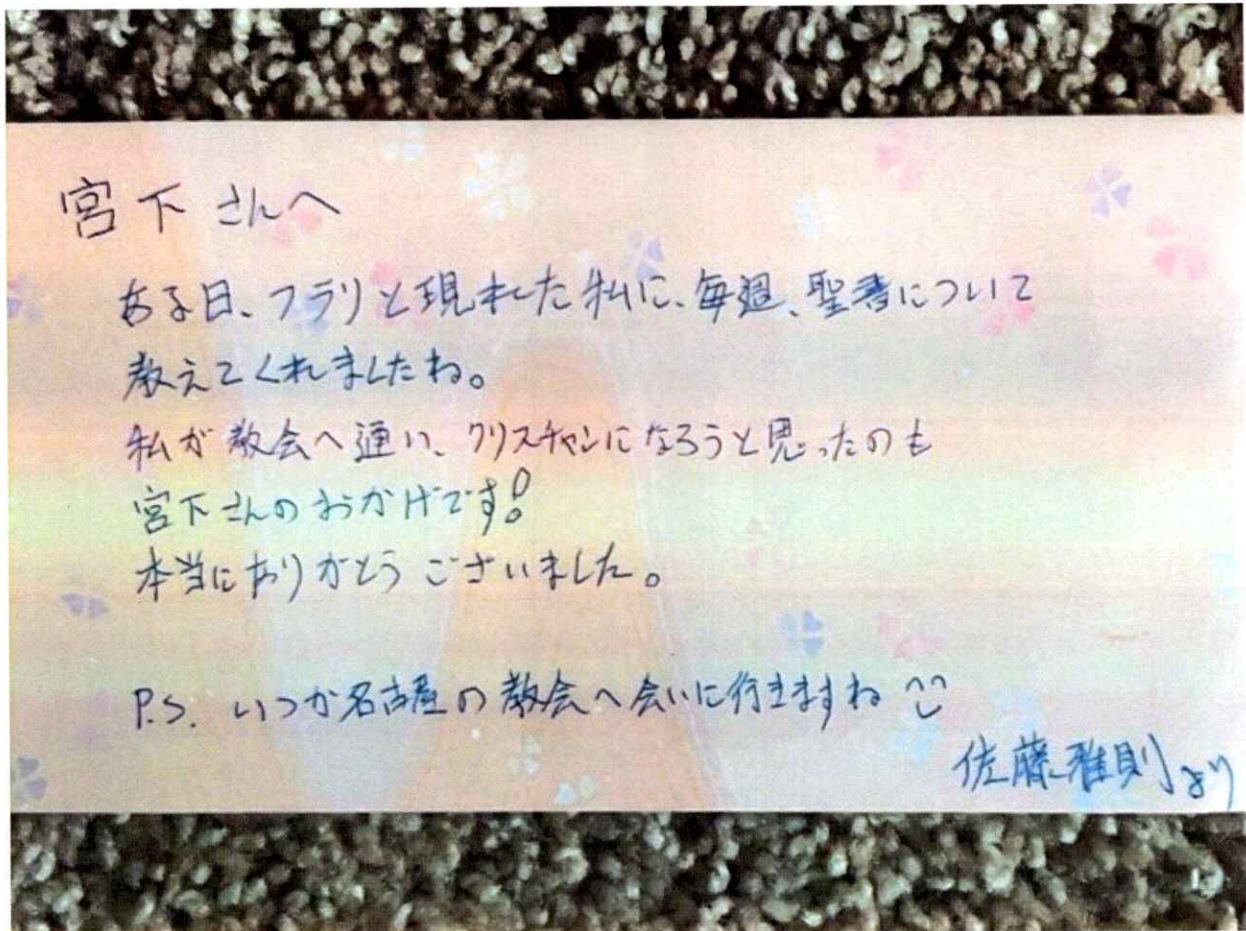 宮下さんへ
ある日、フラリと現れた私に、毎週、聖書について
教えてくれましたね。
私が教会へ通い、クリスチャンになろうと思ったのも
宮下さんのおかげです!
本当にありがとうございました。
P.S. いつか名古屋の教会へ会いに行きますね
佐藤雅則より